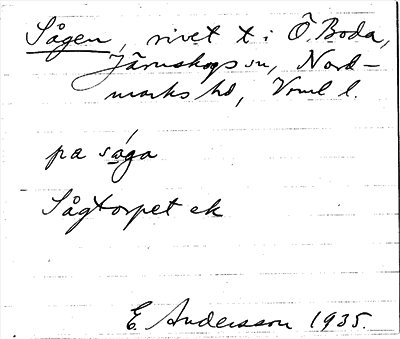 Sågen, rivet t. i Ö. Boda,
Järnskogs sn, Nord-
marks hd, Vrml l.
på såga
Sågtorpet ek
E. Andersson 1935.